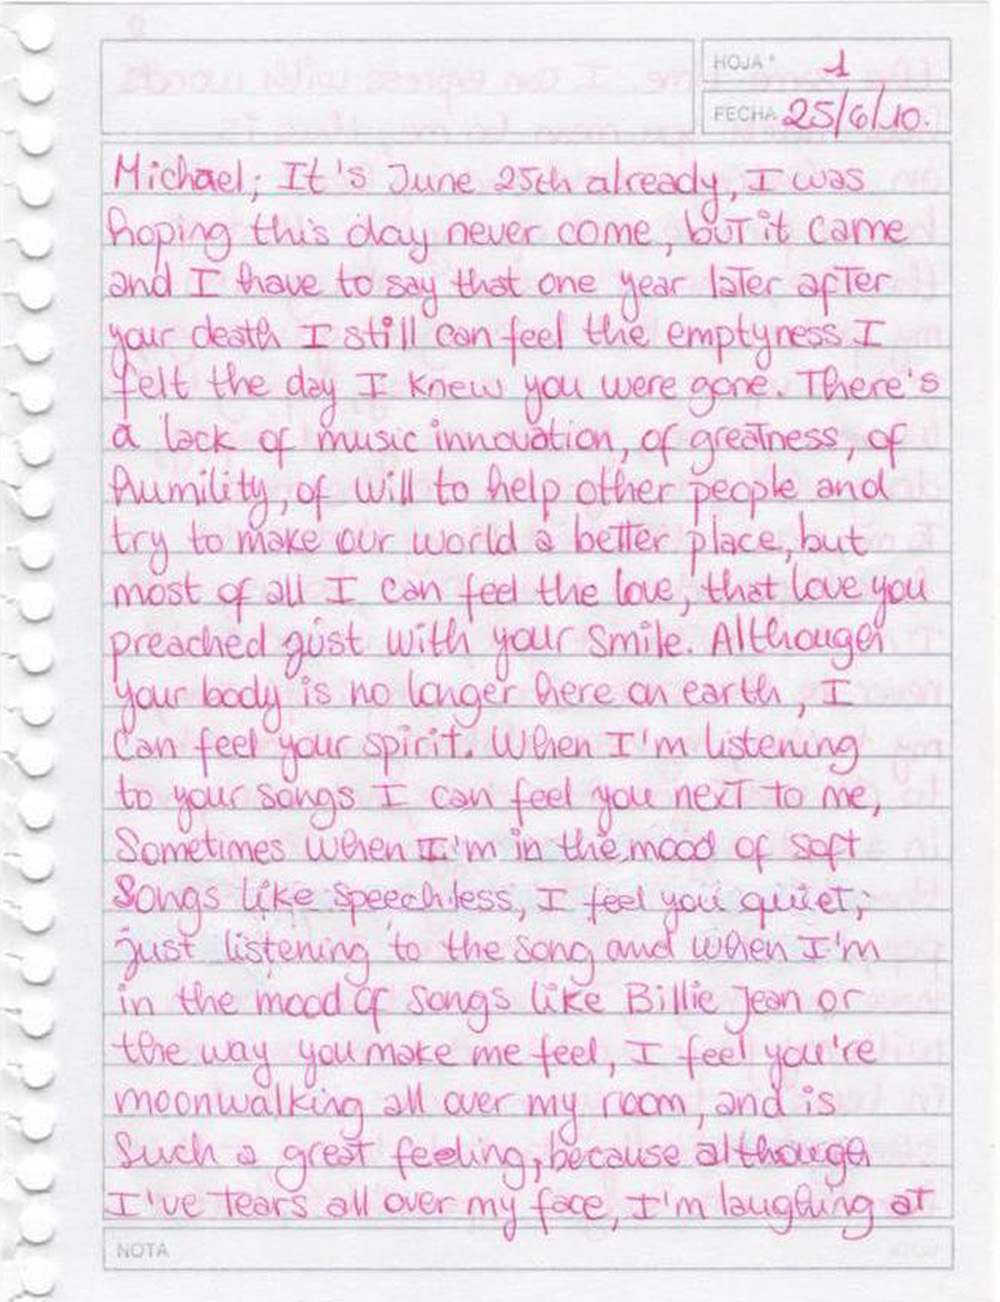 HOJA° 1
FECHA 25/6/10.
Michael; It's June 25th already, I was
hoping this day never come, but it came
and I have to say that one year later after
your death I still can feel the emptyness I
felt the day I knew you were gone. There's
a lack of music innovation, of greatness, of
humility, of will to help other people and
try to make our world a better place, but
most of all I can feel the love, that love you
preached just with your smile. Although
your body is no longer here on earth, I
can feel your spirit. When I'm listening
to your songs I can feel you next to me,
Sometimes when I'm in the mood of soft
Songs like speechless, I feel you quiet;
just listening to the song and when I'm
in the mood of songs like Billie Jean or
the way you make me feel, I feel you're
moonwalking all over my room, and is
Such a great feeling, because although
I've tears all over my face, I'm laughing at
NOTA